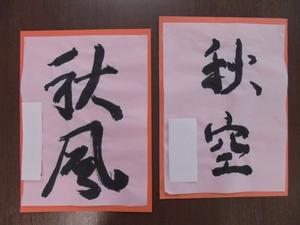 秋風
秋空